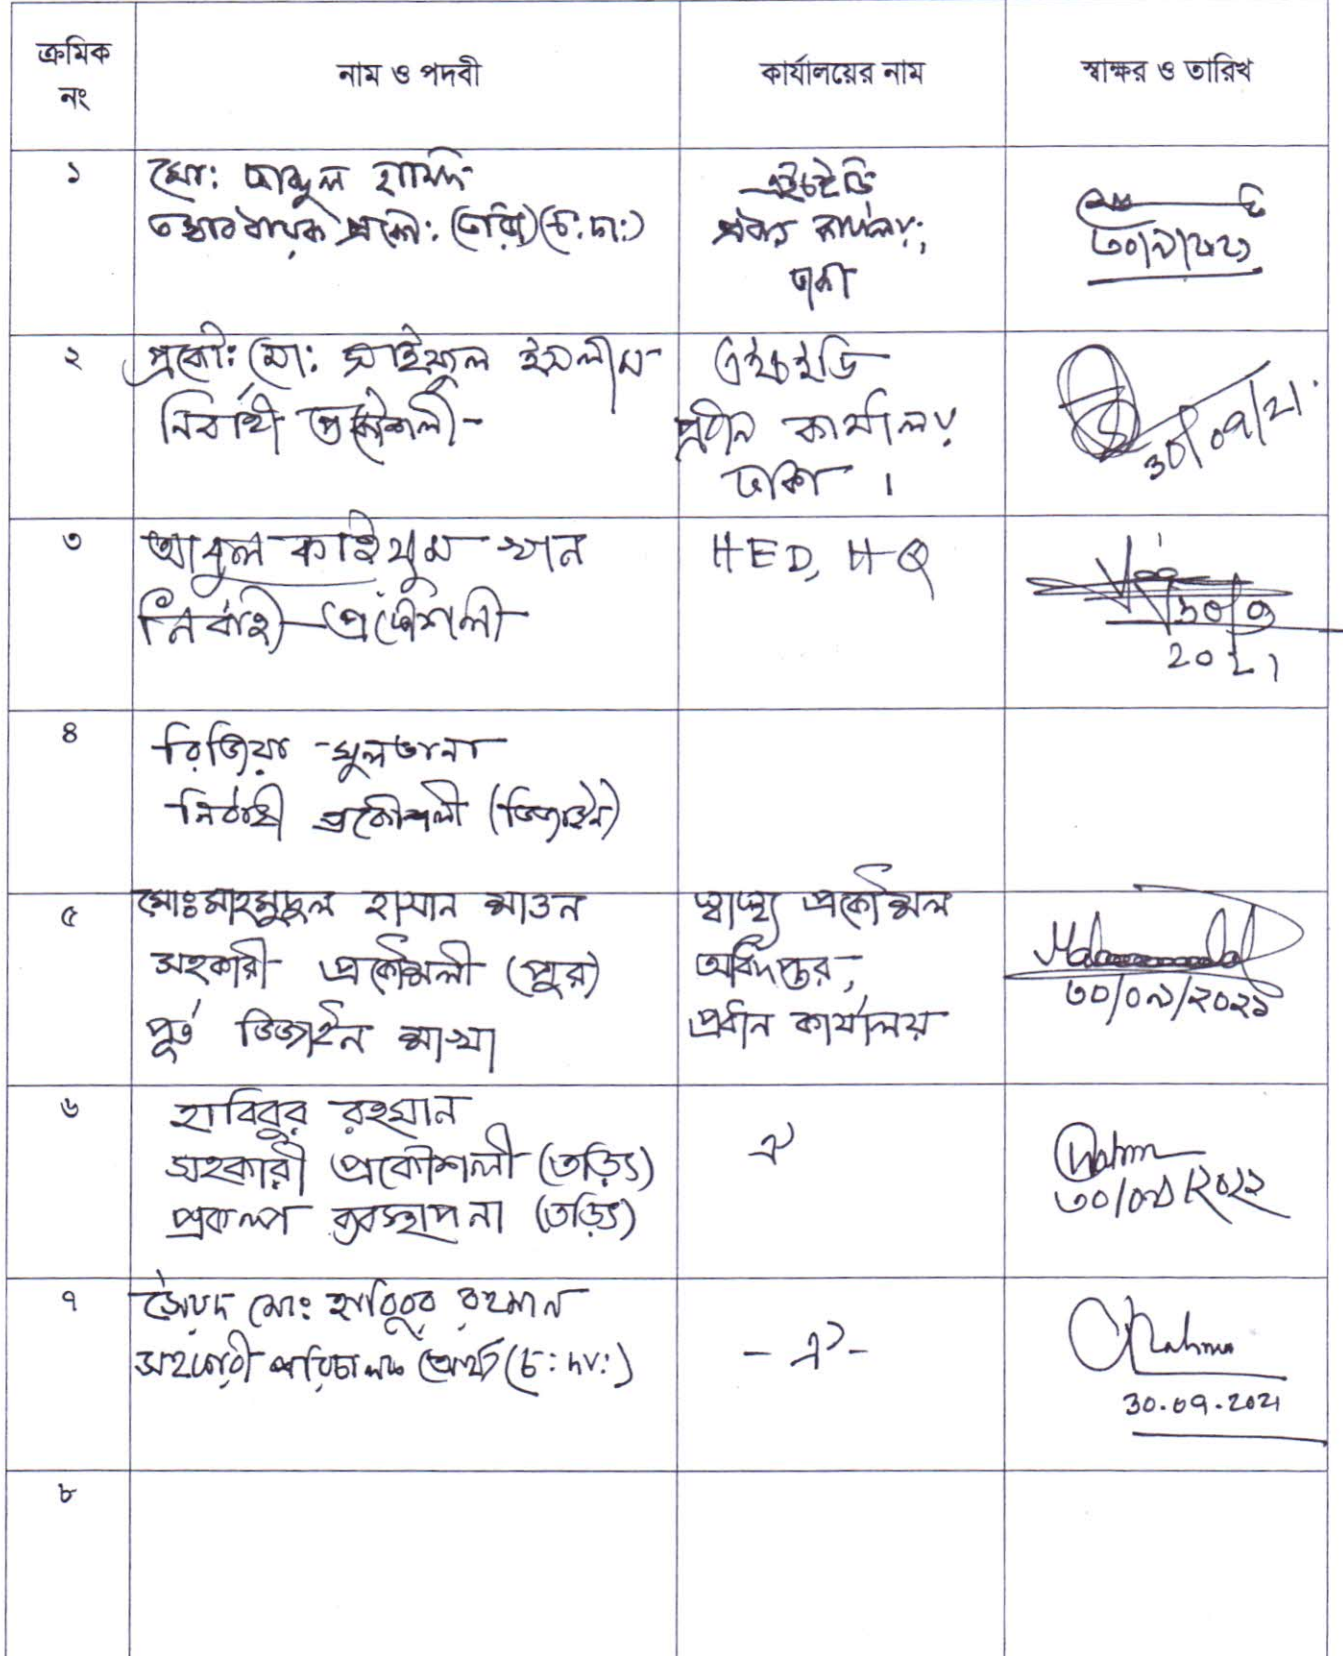 ক্রমিক
নং
নাম ও পদবী
কার্যালয়ের নাম
স্বাক্ষর ও তারিখ
১
মো: আব্দুল হামিদ
তত্ত্বাবধায়ক প্রকৌ: (চ:দা:)
এইচইডি
প্রধান কার্যালয়,
ঢাকা
২
প্রকৌ: মো: সাইফুল ইসলাম
নির্বাহী প্রকৌশলী
এইচইডি
প্রধান কার্যালয়
ঢাকা ।
30/09/21
৩
আবুল কাইয়ুম খান
নির্বাহী প্রকৌশলী
HED, HQ
30/9
2021
৪
রিজিয়া সুলতানা
নির্বাহী প্রকৌশলী (ডিজাইন)
৫
মোঃ মাহমুদুল হাসান শাওন
সহকারী প্রকৌশলী (পুর)
পূর্ত ডিজাইন শাখা
স্বাস্থ্য প্রকৌশল
অধিদপ্তর,
প্রধান কার্যালয়
৩০/০৯/২০২১
৬
হাবিবুর রহমান
সহকারী প্রকৌশলী (তড়িৎ)
প্রকল্প ব্যবস্থাপনা (তড়িৎ)
ঐ
৩০/০৯/২০২১
৭
সৈয়দ মোঃ হাবিবুর রহমান
সহকারী পরিচালক (অর্থ) (চ:দা:)
- ঐ -
Rahman
30.09.2021
৮